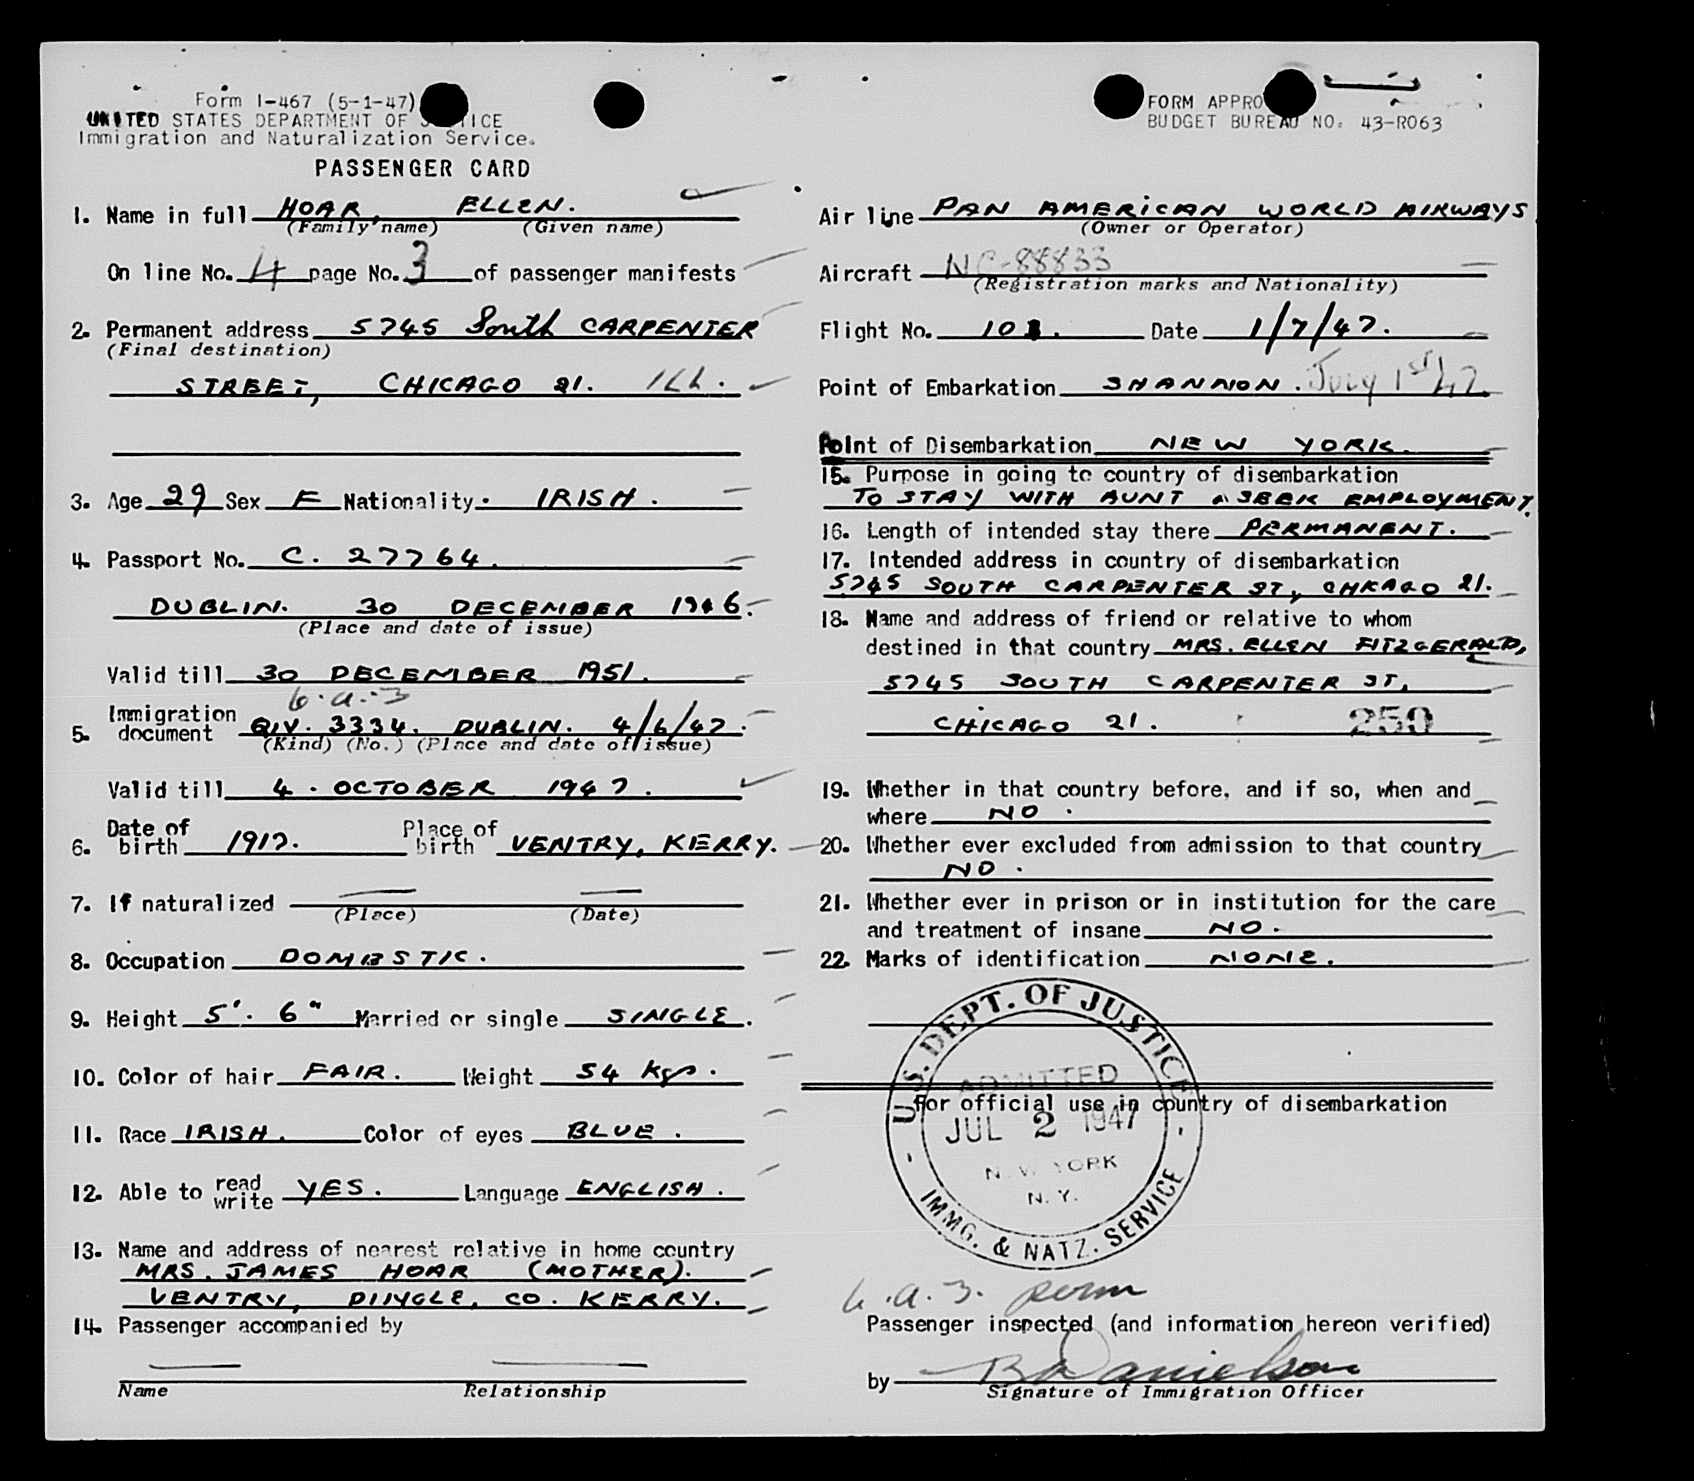 Form I-467 (5-1-47)
UNITED STATES DEPARTMENT OF J TICE
Immigration and Naturalization Service.
PASSENGER CARD
1. Name in full HOAR, ELLEN.
(Family name) (Given name)
On line No. 4 page No. 3 of passenger manifests
2. Permanent address 5745 South CARPENTER
(Final destination)
STREET, CHICAGO 21. Ill.
3. Age 29 Sex F Nationality. IRISH.
4. Passport No. C. 27764.
DUBLIN. 30 DECEMBER 1946.
(Place and date of issue)
Valid till 30 DECEMBER 1951.
6.a.-3
5. Immigration document QIV. 3334. DUBLIN. 4/6/47.
(Kind) (No.) (Place and date of issue)
Valid till 4. OCTOBER 1947.
6. Date of birth 1917. Place of birth VENTRY, KERRY.
7. If naturalized
(Place) (Date)
8. Occupation DOMESTIC.
9. Height 5'. 6" Married or single SINGLE.
10. Color of hair FAIR. Weight 54 Kgs.
11. Race IRISH. Color of eyes BLUE.
12. Able to read write YES. Language ENGLISH.
13. Name and address of nearest relative in home country
MRS. JAMES HOAR (MOTHER).
VENTRY, DINGLE, CO. KERRY.
14. Passenger accompanied by
Name Relationship
FORM APPRO
BUDGET BUREAU NO. 43-R063
Air line PAN AMERICAN WORLD AIRWAYS
(Owner or Operator)
Aircraft NC-88833
(Registration marks and Nationality)
Flight No. Date 1/7/47.
Point of Embarkation SHANNON. July 1st 47
Point of Disembarkation NEW YORK.
15. Purpose in going to country of disembarkation
TO STAY WITH AUNT & SEEK EMPLOYMENT.
16. Length of intended stay there PERMANENT.
17. Intended address in country of disembarkation
5745 SOUTH CARPENTER ST, CHICAGO 21.
18. Name and address of friend or relative to whom
destined in that country MRS. ELLEN FITZGERALD,
5745 SOUTH CARPENTER ST,
CHICAGO 21. 250
19. Whether in that country before, and if so, when and
where NO.
20. Whether ever excluded from admission to that country
NO.
21. Whether ever in prison or in institution for the care
and treatment of insane NO.
22. Marks of identification NONE.
U.S. DEPT. OF JUSTICE
ADMITTED
For official use in country of disembarkation
JUL 2 1947
N.W YORK
N.Y.
IMMG. & NATZ. SERVICE
6.a.3. perm
Passenger inspected (and information hereon verified)
by B Danielson
Signature of Immigration Officer